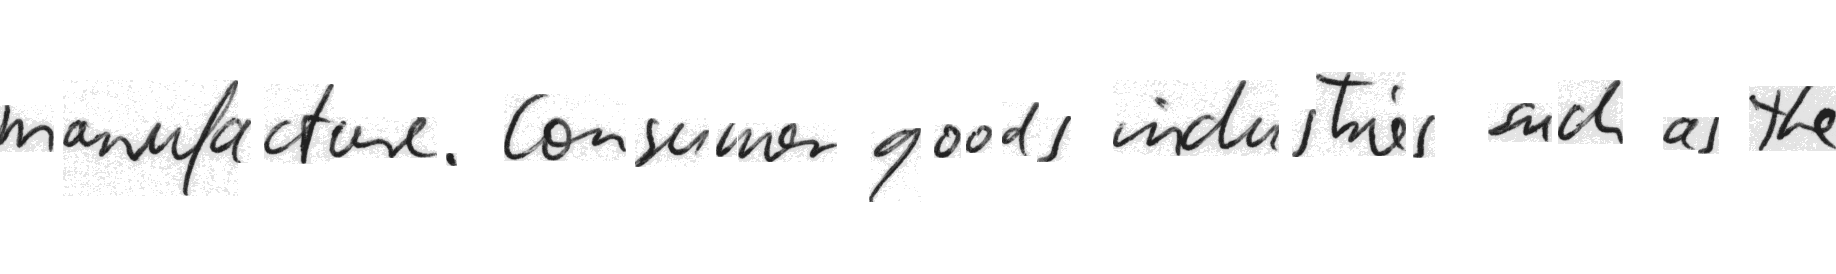 manufacture. Consumer goods industries such as the